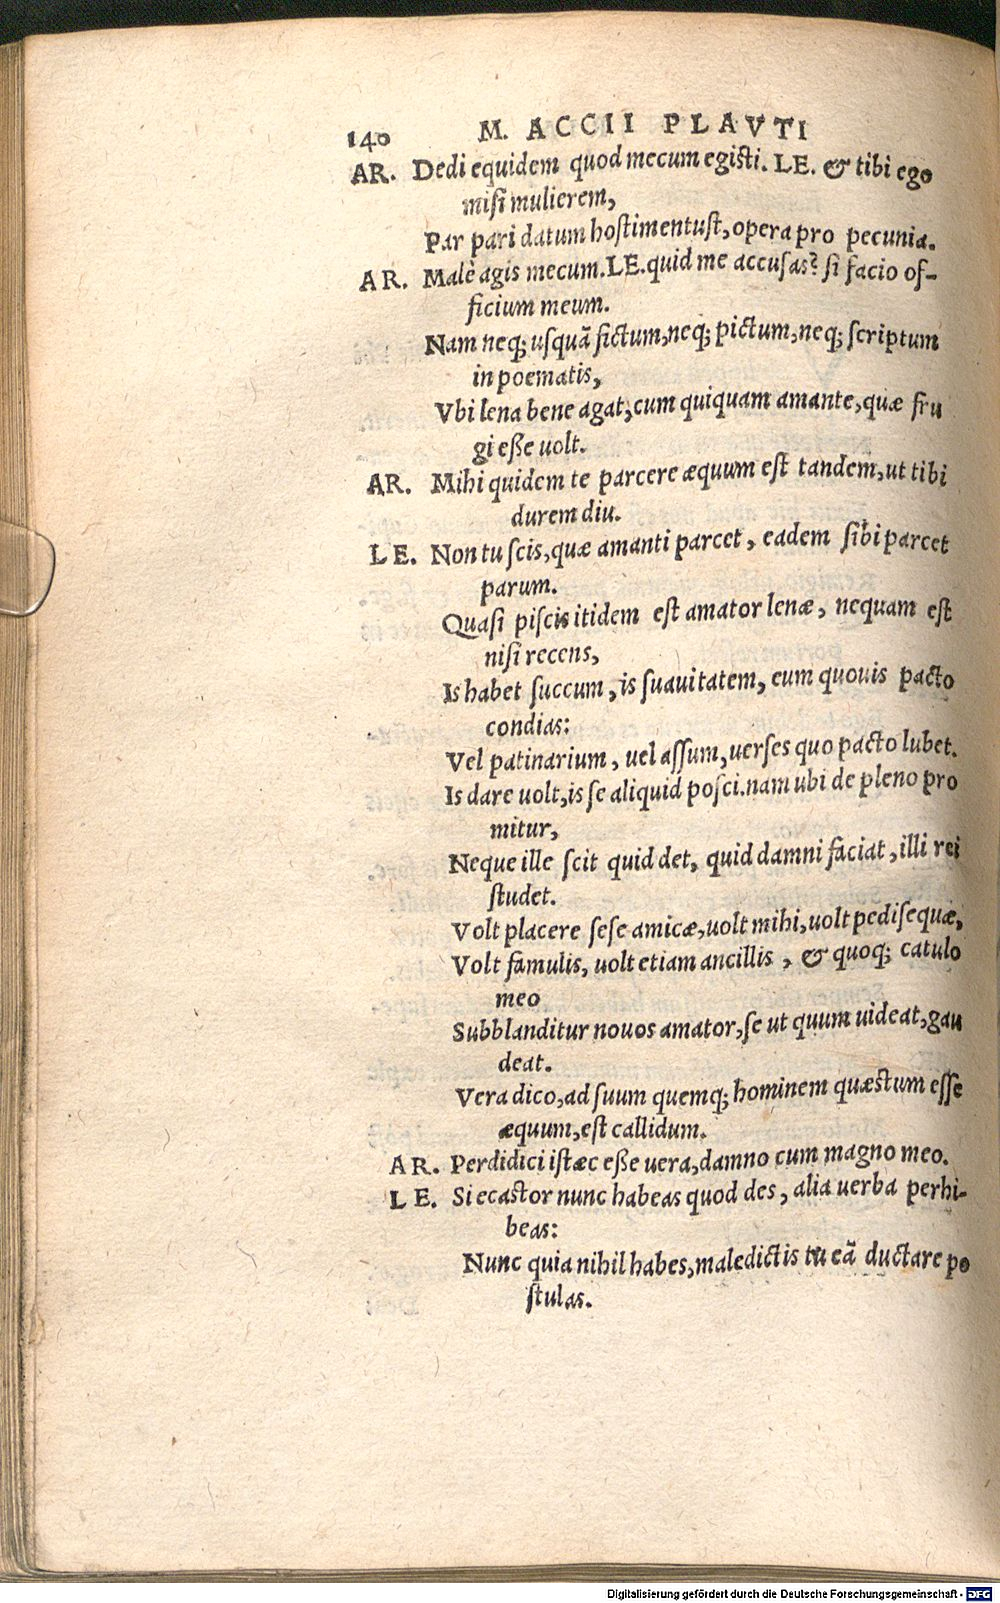 140 M. ACCII PLAVTI
AR. Dedi equidem quod mecum egisti. LE. & tibi ego
misi mulierem,
Par pari datum hostimentust, opera pro pecunia.
AR. Malè agis mecum. LE. quid me accusas? si facio of-
ficium meum.
Nam neq; usquã fictum, neq; pictum, neq; scriptum
in poematis,
Vbi lena bene agat, cum quiquam amante, quæ fru
gi eße uolt.
AR. Mihi quidem te parcere æquum est tandem, ut tibi
durem diu.
LE. Non tu scis, quæ amanti parcet, eadem sibi parcet
parum.
Quasi piscis itidem est amator lenæ, nequam est
nisi recens,
Is habet succum, is suauitatem, eum quouis pacto
condias:
Vel patinarium, uel assum, uerses quo pacto lubet.
Is dare uolt, is se aliquid posci. nam ubi de pleno pro
mitur,
Neque ille scit quid det, quid damni faciat, illi rei
studet.
Volt placere sese amicæ, uolt mihi, uolt pedisequæ,
Volt famulis, uolt etiam ancillis, & quoq; catulo
meo
Subblanditur nouos amator, se ut quum uideat, gau
deat.
Vera dico, ad suum quemq; hominem quæstum esse
æquum, est callidum.
AR. Perdidici istæc eße uera, damno cum magno meo.
LE. Si ecastor nunc habeas quod des, alia uerba perhi-
beas:
Nunc quia nihil habes, maledictis tu eã ductare po
stulas.
Digitalisierung gefördert durch die Deutsche Forschungsgemeinschaft - DFG